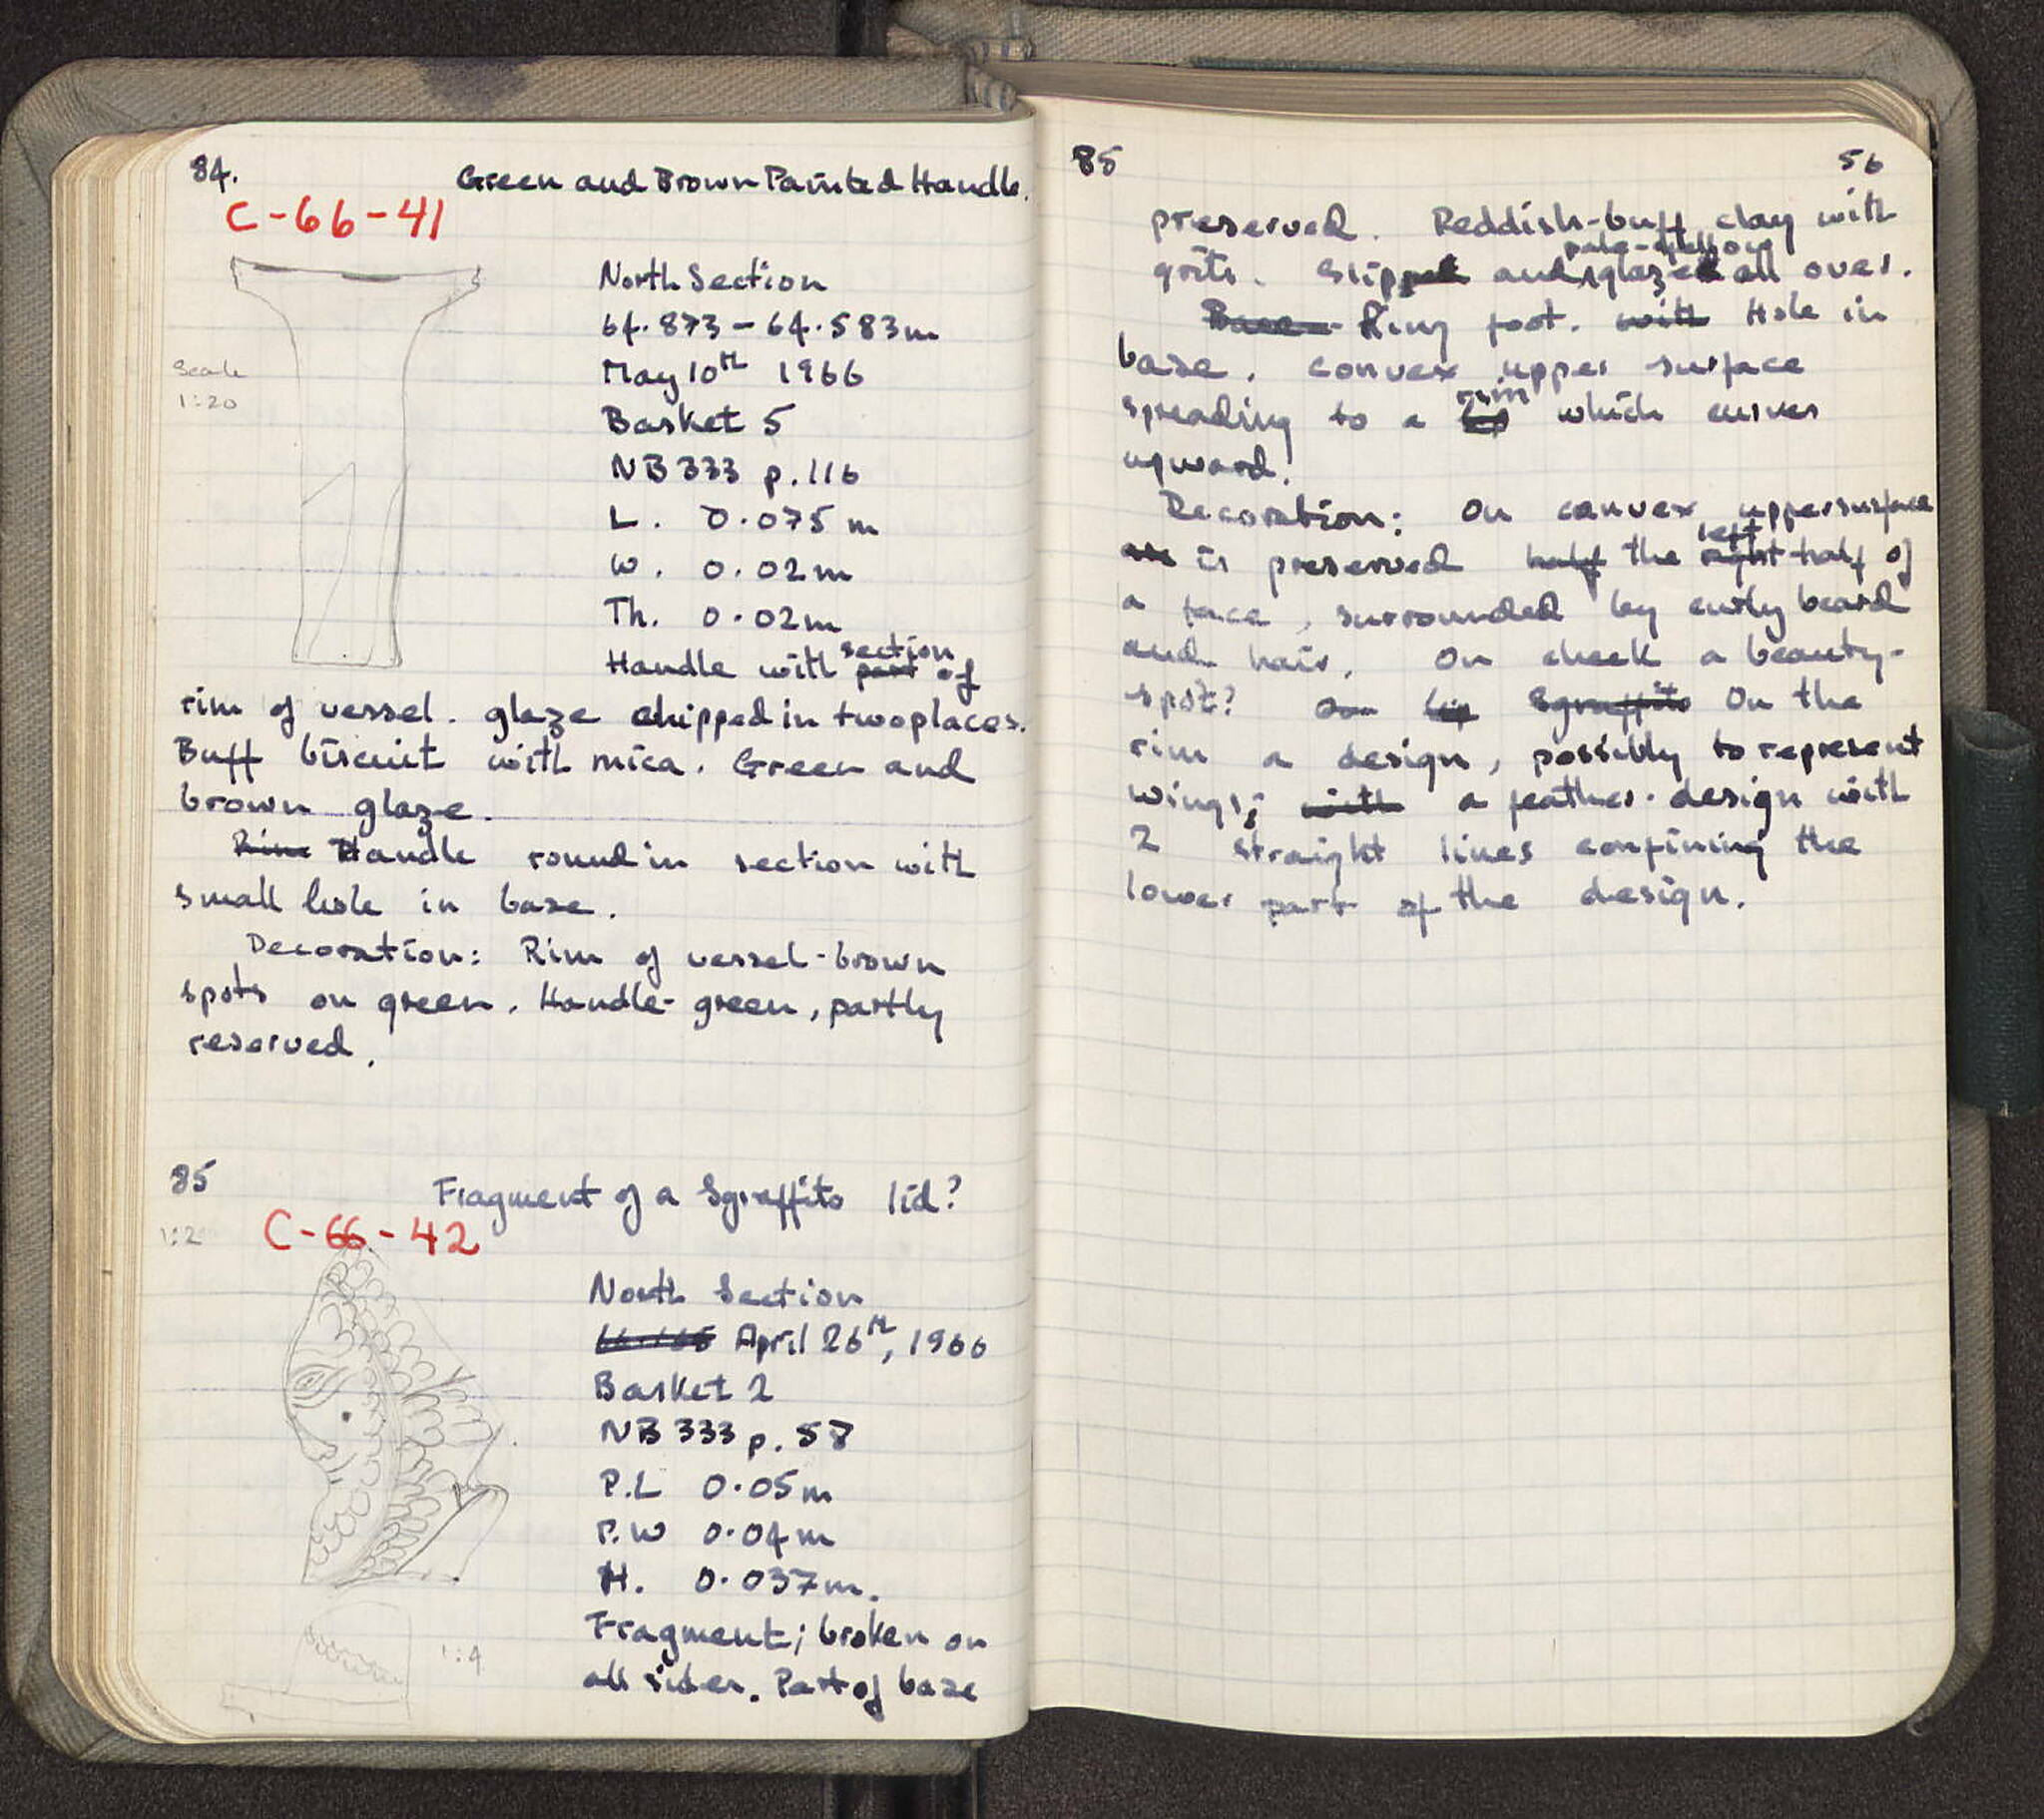 84.
Green and Brown Painted Handle.
C-66-41
North Section
64.873 - 64.583m
Scale
1:20
May 10th 1966
Basket 5
NB 333 p.116
L. 0.075 m
W. 0.02m
Th. 0.02m
Handle with part section of
rim of vessel. glaze chipped in two places.
Buff biscuit with mica. Green and
brown glaze.
Rim Handle round in section with
small hole in base.
Decoration: Rim of vessel - brown
spots on green. Handle - green, partly
reserved.
85
Fragment of a Sgraffito lid?
1:2
C-66-42
North Section
April 26th, 1966
Basket 2
NB 333 p. 58
P.L 0.05m
P.W 0.04m
H. 0.037m.
Fragment; broken on
1:4
all sides. Part of base
85
56
preserved. Reddish-buff clay with
grits. Slip and pale-yellow glaze all over.
Base Ring foot. with Hole in
base. Convex upper surface
spreading to a rim which curves
upward.
Decoration: On convex upper surface
is preserved half the right left half of
a face, surrounded by curly beard
and hair. On cheek a beauty-
spot? On lip Sgraffito On the
rim a design, possibly to represent
wings; with a feather-design with
2 straight lines confining the
lower part of the design.